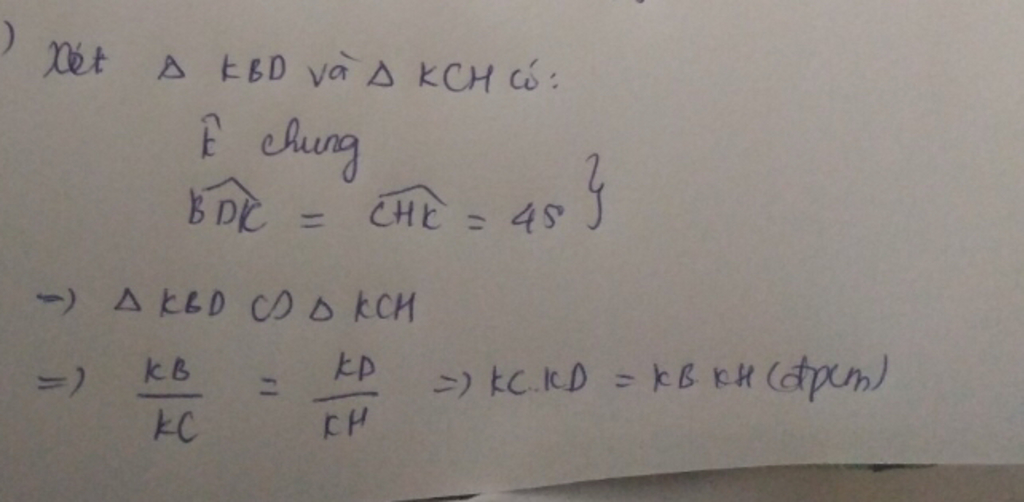 ) Xét Δ KBD và Δ KCH có:
K̂ chung
\widehat{BDK} = \widehat{CHK} = 45 }
=> Δ KBD ∽ Δ KCH
=> \frac{KB}{KC} = \frac{KD}{KH} => KC.KD = KB KH (đpcm)